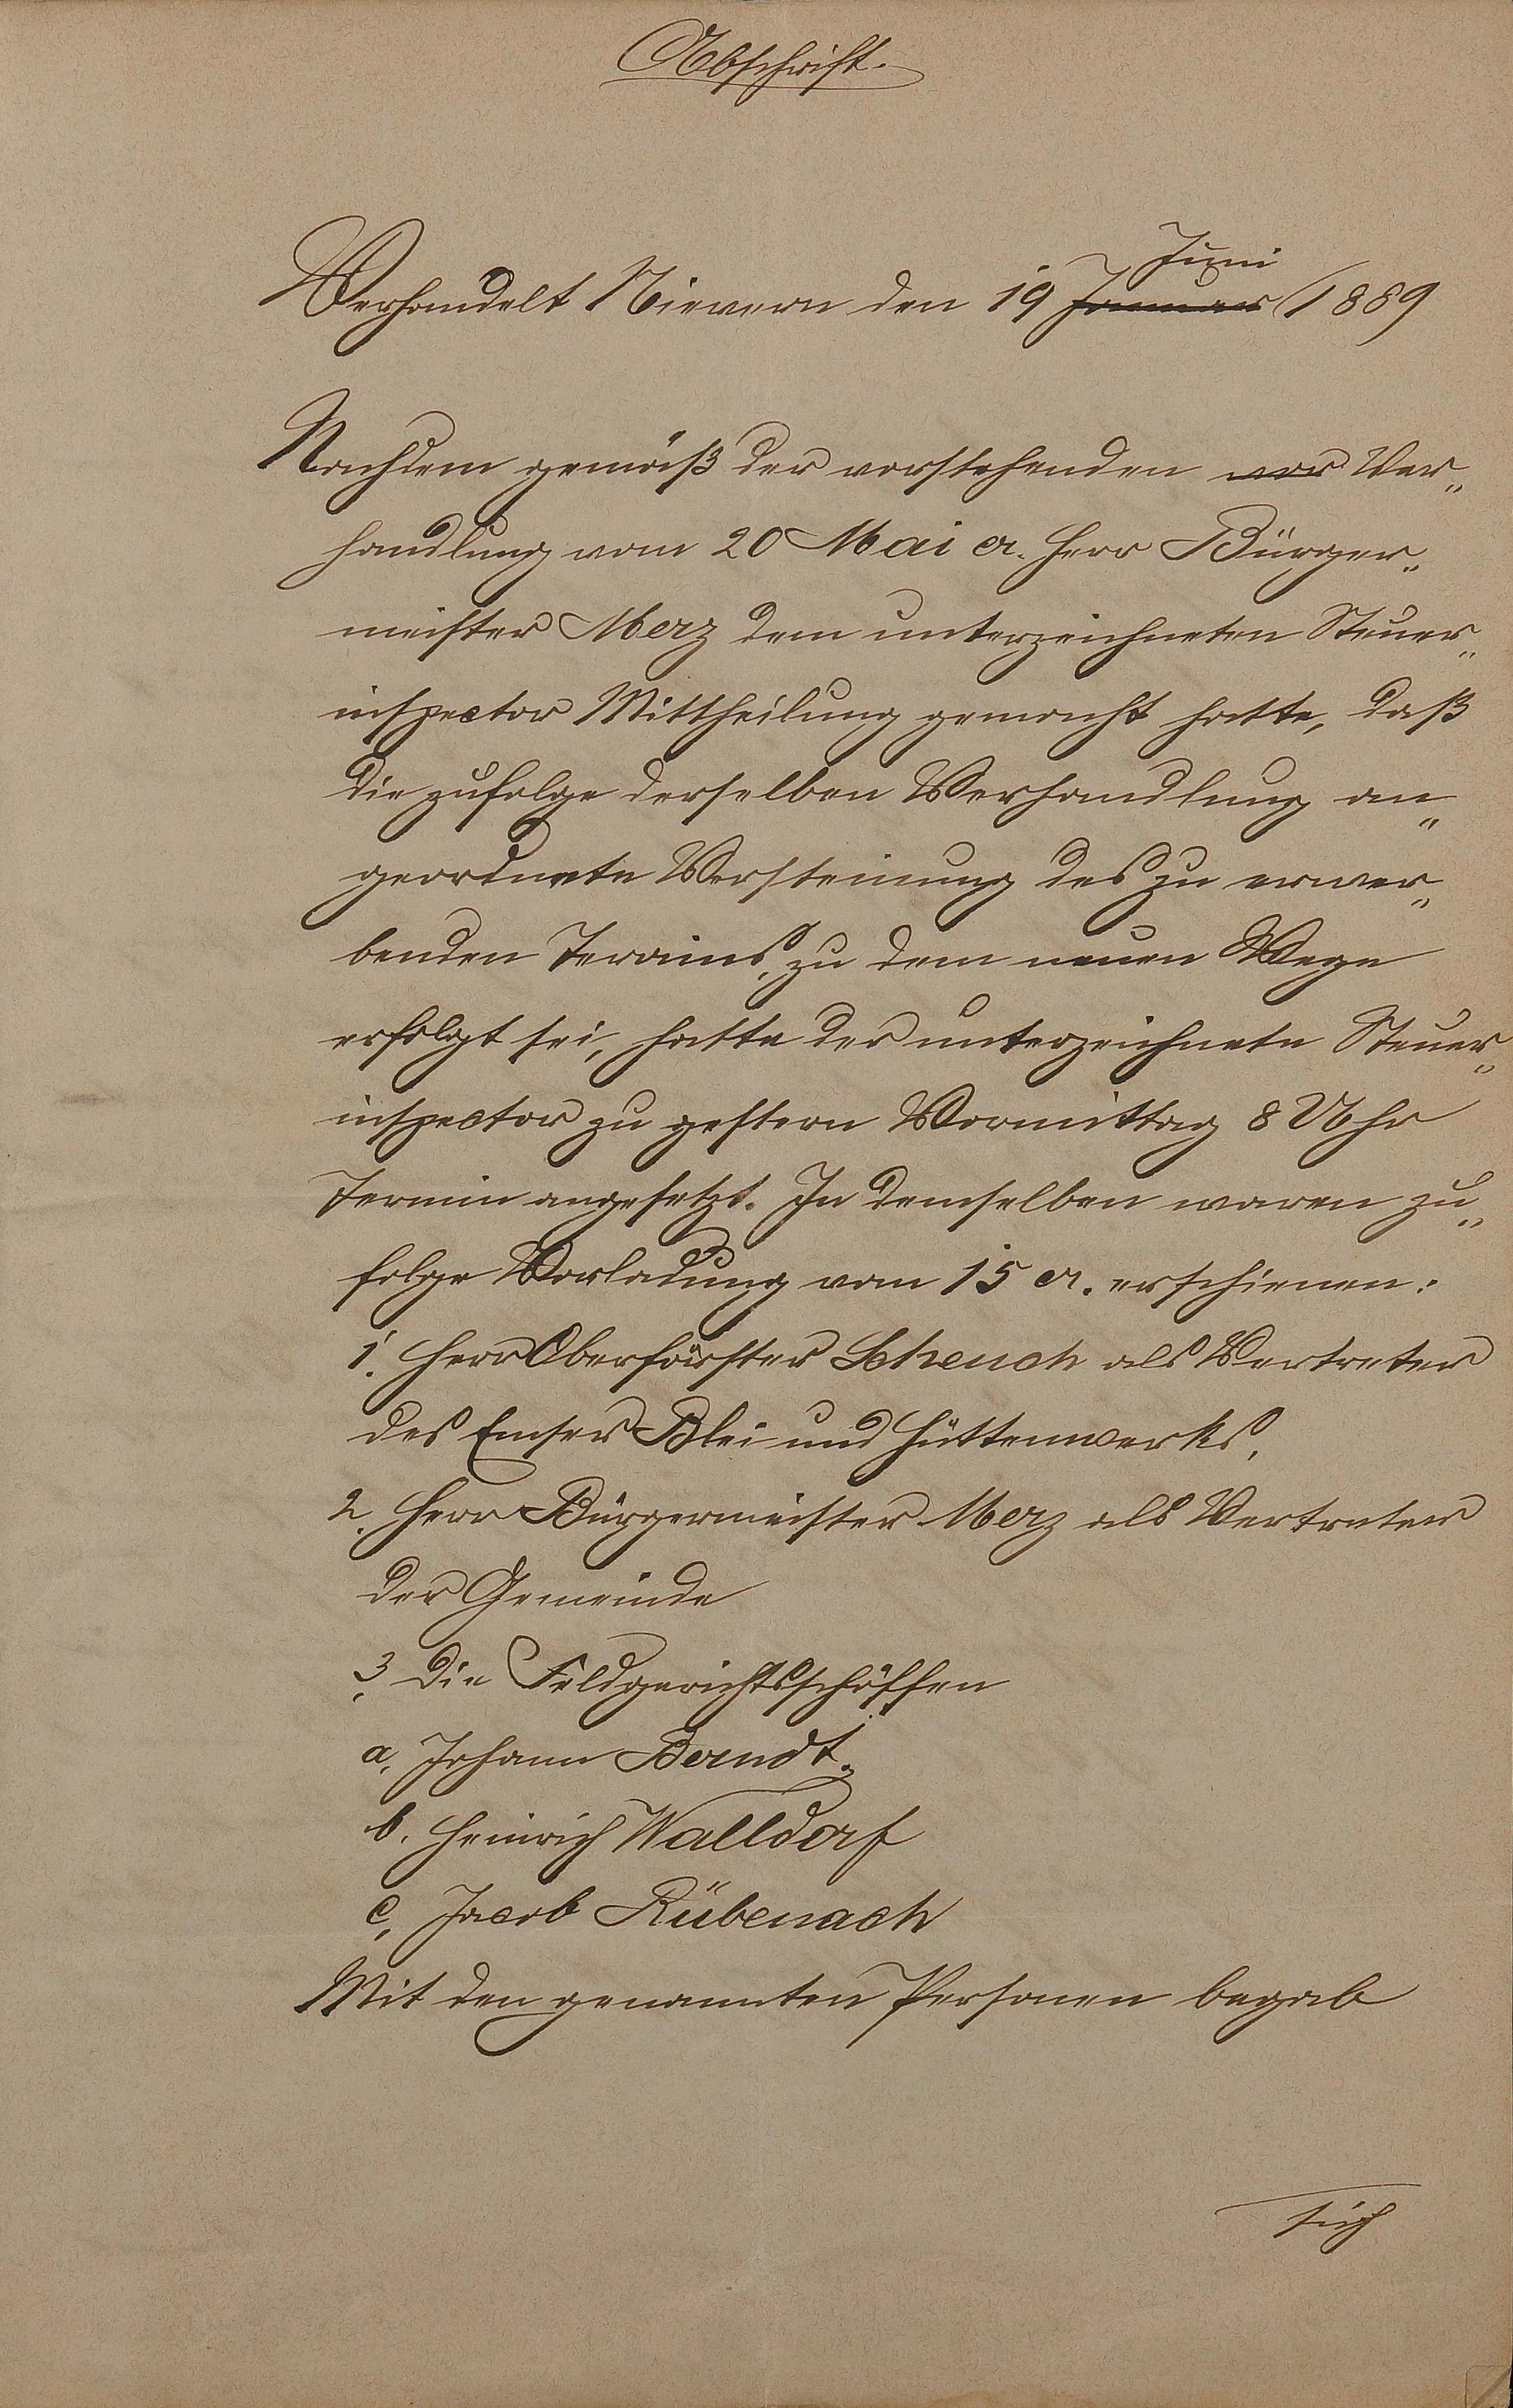 Abschrift.
Juni
Verhandelt Nievern den 19 Januar 1889
Nachdem gemäß der vorstehenden vor Ver„
handlung vom 20 Mai cr. Herr Bürger„
meister Merz dem unterzeichneten Steuer„
inspector Mittheilung gemacht hatte, daß
die zufolge derselben Verhandlung an„
geordnete Versteinung des zu erwer„
benden Terrains, zu dem neuen Wege
erfolgt sei, hatte der unterzeichnete Steuer„
inspector zu gestern Vormittag 8 Uhr
Termin angesetzt. In demselben waren zu„
folge Vorladung vom 15 cr. erschienen:
1. Herr Oberförster Scheuch als Vertreter
des Emser Blei und Hüttenwerks.
2. Herr Bürgermeister Merz als Vertreter
der Gemeinde
3. Die Feldgerichtsschöffen
a, Johann Berndt.
b. Heinrich Walldorf
c, Jacob Rübenach
Mit den genannten Personen begab
sich